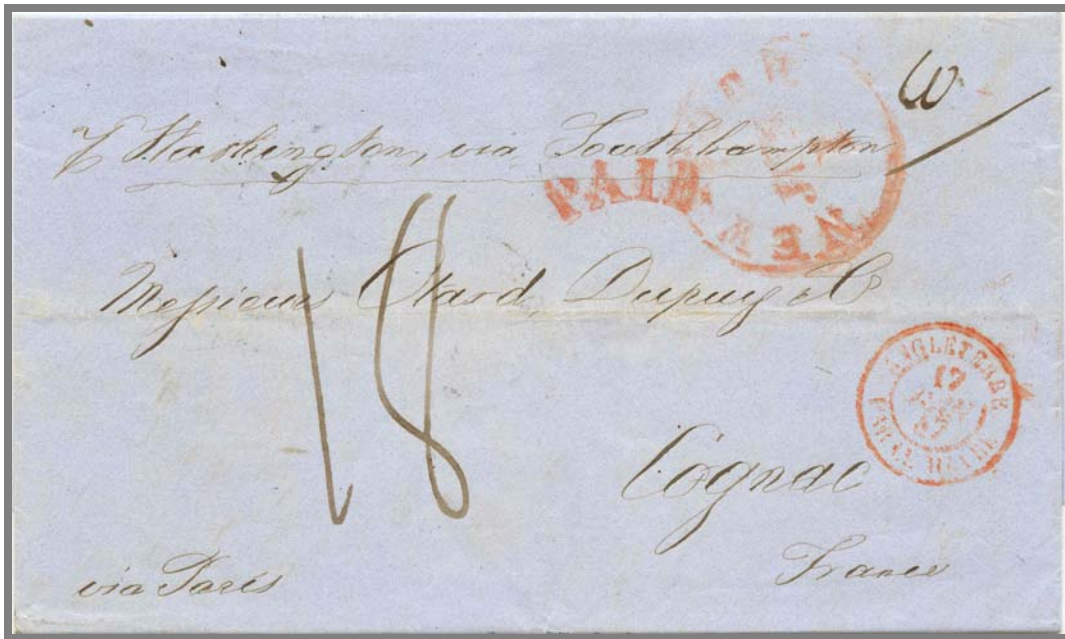 p Washington, via Southhampton
PAID
NEW
Messieurs Otard, Dupuy & Co
18
ANGLETERRE
PAR LE HAVRE
Cognac
France
via Paris